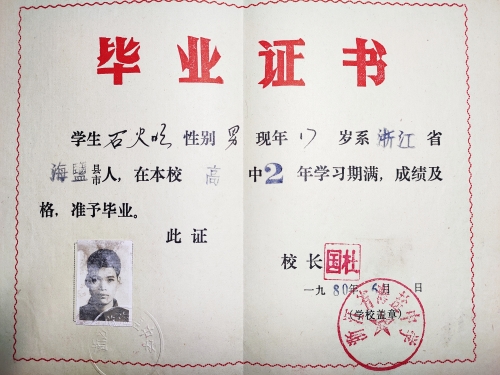 毕业证书
学生石火明 性别男 现年17岁系浙江省
海盐县市人，在本校高中2年学习期满，成绩及
格，准予毕业。
此证
校长
一九80年6月 日
(学校盖章)